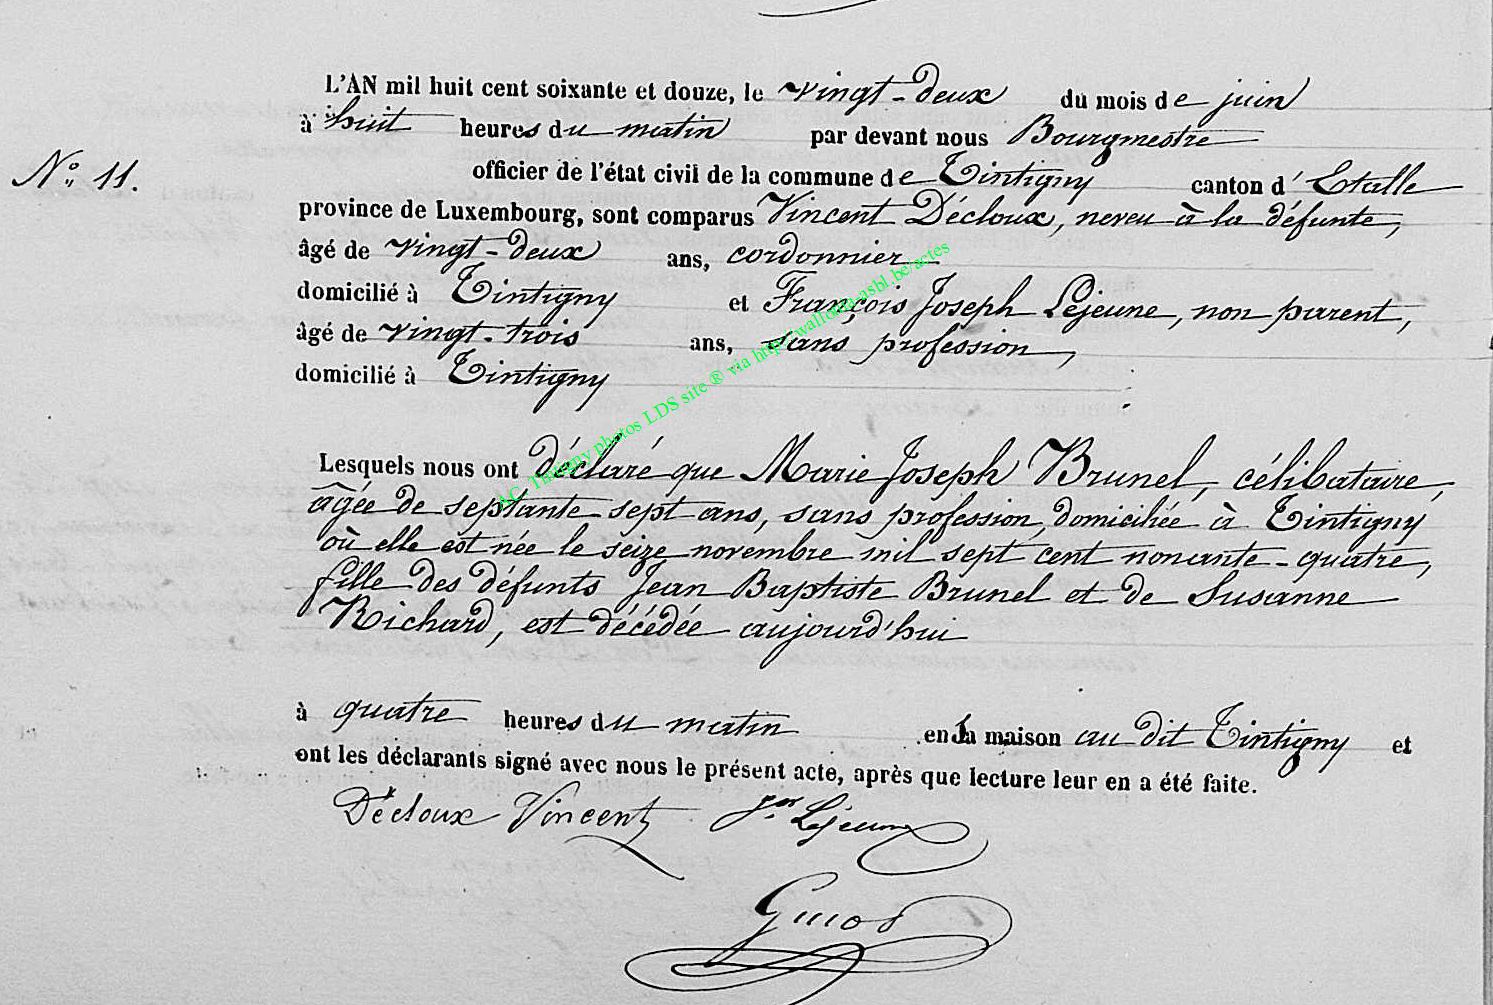 L'AN mil huit cent soixante et douze, le vingt-deux du mois de juin
à huit heures du matin par devant nous Bourgmestre
N° 11.
officier de l'état civil de la commune de Tintigny canton d' Etalle
province de Luxembourg, sont comparus Vincent Décloux, neveu à la défunte,
âgé de vingt-deux ans, cordonnier
domicilié à Tintigny et François Joseph Lejeune, non parent,
âgé de vingt-trois ans, sans profession,
domicilié à Tintigny
AC Tintigny photos LDS site ® via http://wallonia-asbl.be/actes
Lesquels nous ont déclaré que Marie Joseph Brunel, célibataire,
âgée de septante sept ans, sans profession, domiciliée à Tintigny
où elle est née le seize novembre mil sept cent nonante-quatre,
fille des défunts Jean Baptiste Brunel et de Susanne
Richard, est décédée aujourd'hui
à quatre heures du matin en sa maison au dit Tintigny et
ont les déclarants signé avec nous le présent acte, après que lecture leur en a été faite.
Décloux Vincent Lejeune